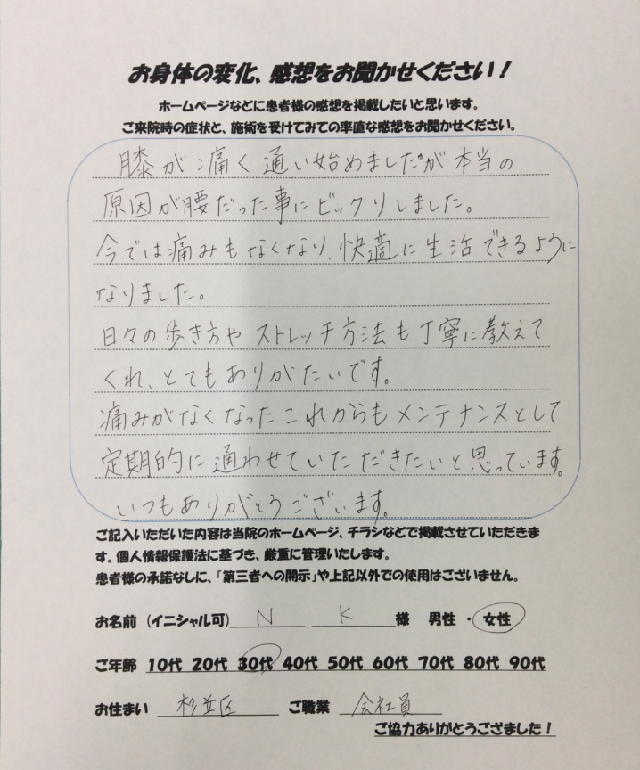 お身体の変化、感想をお聞かせください!
ホームページなどに患者様の感想を掲載したいと思います。
ご来院時の症状と、施術を受けてみての率直な感想をお聞かせください。
膝が痛く通い始めましたが本当の
原因が腰だった事にビックリしました。
今では痛みもなくなり、快適に生活できるように
なりました。
日々の歩き方やストレッチ方法も丁寧に教えて
くれ、とてもありがたいです。
痛みがなくなったこれからもメンテナンスとして
定期的に通わせていただきたいと思っています。
いつもありがとうございます。
ご記入いただいた内容は当院のホームページ、チラシなどで掲載させていただきま
す。個人情報保護法に基づき、厳重に管理いたします。
患者様の承諾なしに、「第三者への開示」や上記以外での使用はございません。
お名前(イニシャル可) N K 様 男性・女性
ご年齢 10代 20代 30代 40代 50代 60代 70代 80代 90代
お住まい 杉並区 ご職業 会社員
ご協力ありがとうござました!